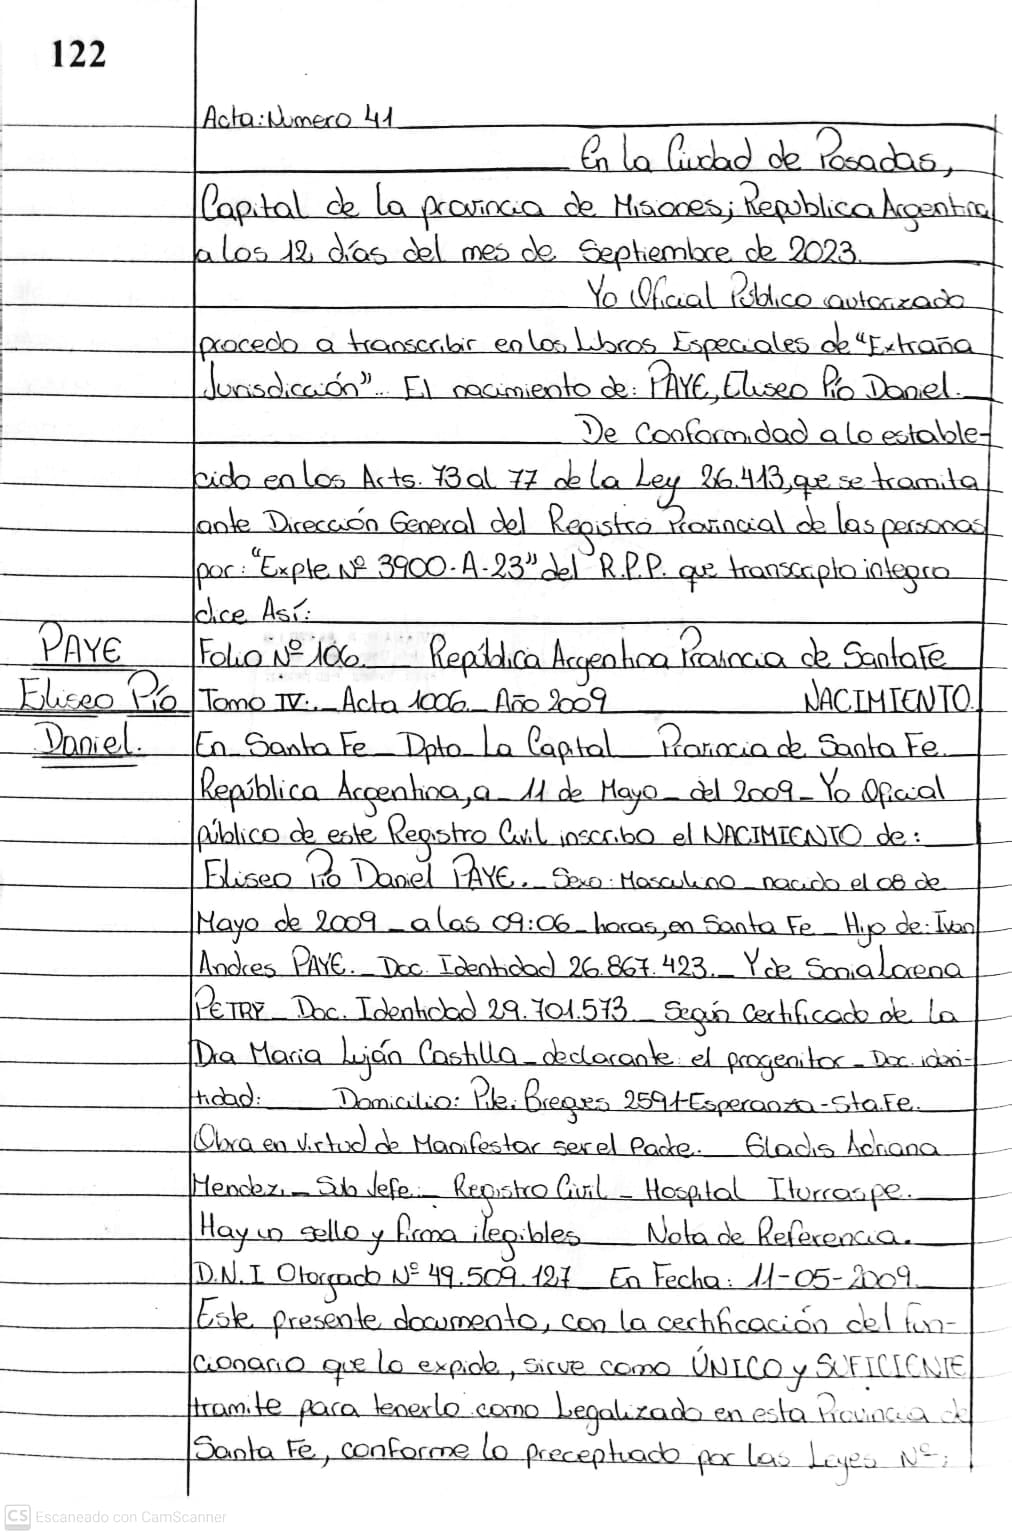 122
Acta: Numero 41
En la Ciudad de Posadas,
Capital de la provincia de Misiones; Republica Argentina
a los 12 días del mes de Septiembre de 2023.
Yo Oficial Público autorizado
procedo a transcribir en los Libros Especiales de "Extraña
Jurisdicción".. El nacimiento de: PAYE, Eliseo Pío Daniel.
De Conformidad a lo estable-
cido en los Arts. 73 al 77 de la Ley 26.413, que se tramita
ante Dirección General del Registro Provincial de las personas
por: "Expte Nº 3900-A-23" del R.P.P. que transcripto integro
dice Así:
PAYE
Eliseo Pío
Daniel.
Folio Nº 106. República Argentina Provincia de Santa Fe
Tomo IV.- Acta 1006 - Año 2009 NACIMIENTO.
En - Santa Fe - Dpto - La Capital Provincia de Santa Fe.
República Argentina, a - 11 de Mayo - del 2009 - Yo Oficial
público de este Registro Civil inscribo el NACIMIENTO de:
Eliseo Pío Daniel PAYE. - Sexo: Masculino - nacido el 08 de
Mayo de 2009 - a las 09:06 - horas, en Santa Fe - Hijo de: Ivan
Andres PAYE. - Doc. Identidad 26.867.423. - Y de Sonia Lorena
PETRY - Doc. Identidad 29.701.573 - Según Certificado de la
Dra Maria Luján Castilla - declarante: el progenitor - Doc. iden-
tidad: Domicilio: Pje. 2591 Esperanza - Sta. Fe.
Obra en virtud de Manifestar ser el Padre. Gladis Adriana
Mendez. - Sub Jefe. - Registro Civil - Hospital Iturraspe.
Hay un sello y firma ilegibles Nota de Referencia.
D.N.I Otorgado Nº 49.509.127 En Fecha: 11-05-2009.
Este presente documento, con la certificación del fun-
cionario que lo expide, sirve como ÚNICO y SUFICIENTE
tramite para tenerlo como Legalizado en esta Provincia de
Santa Fe, conforme lo preceptuado por las Leyes Nº:
CS Escaneado con CamScanner